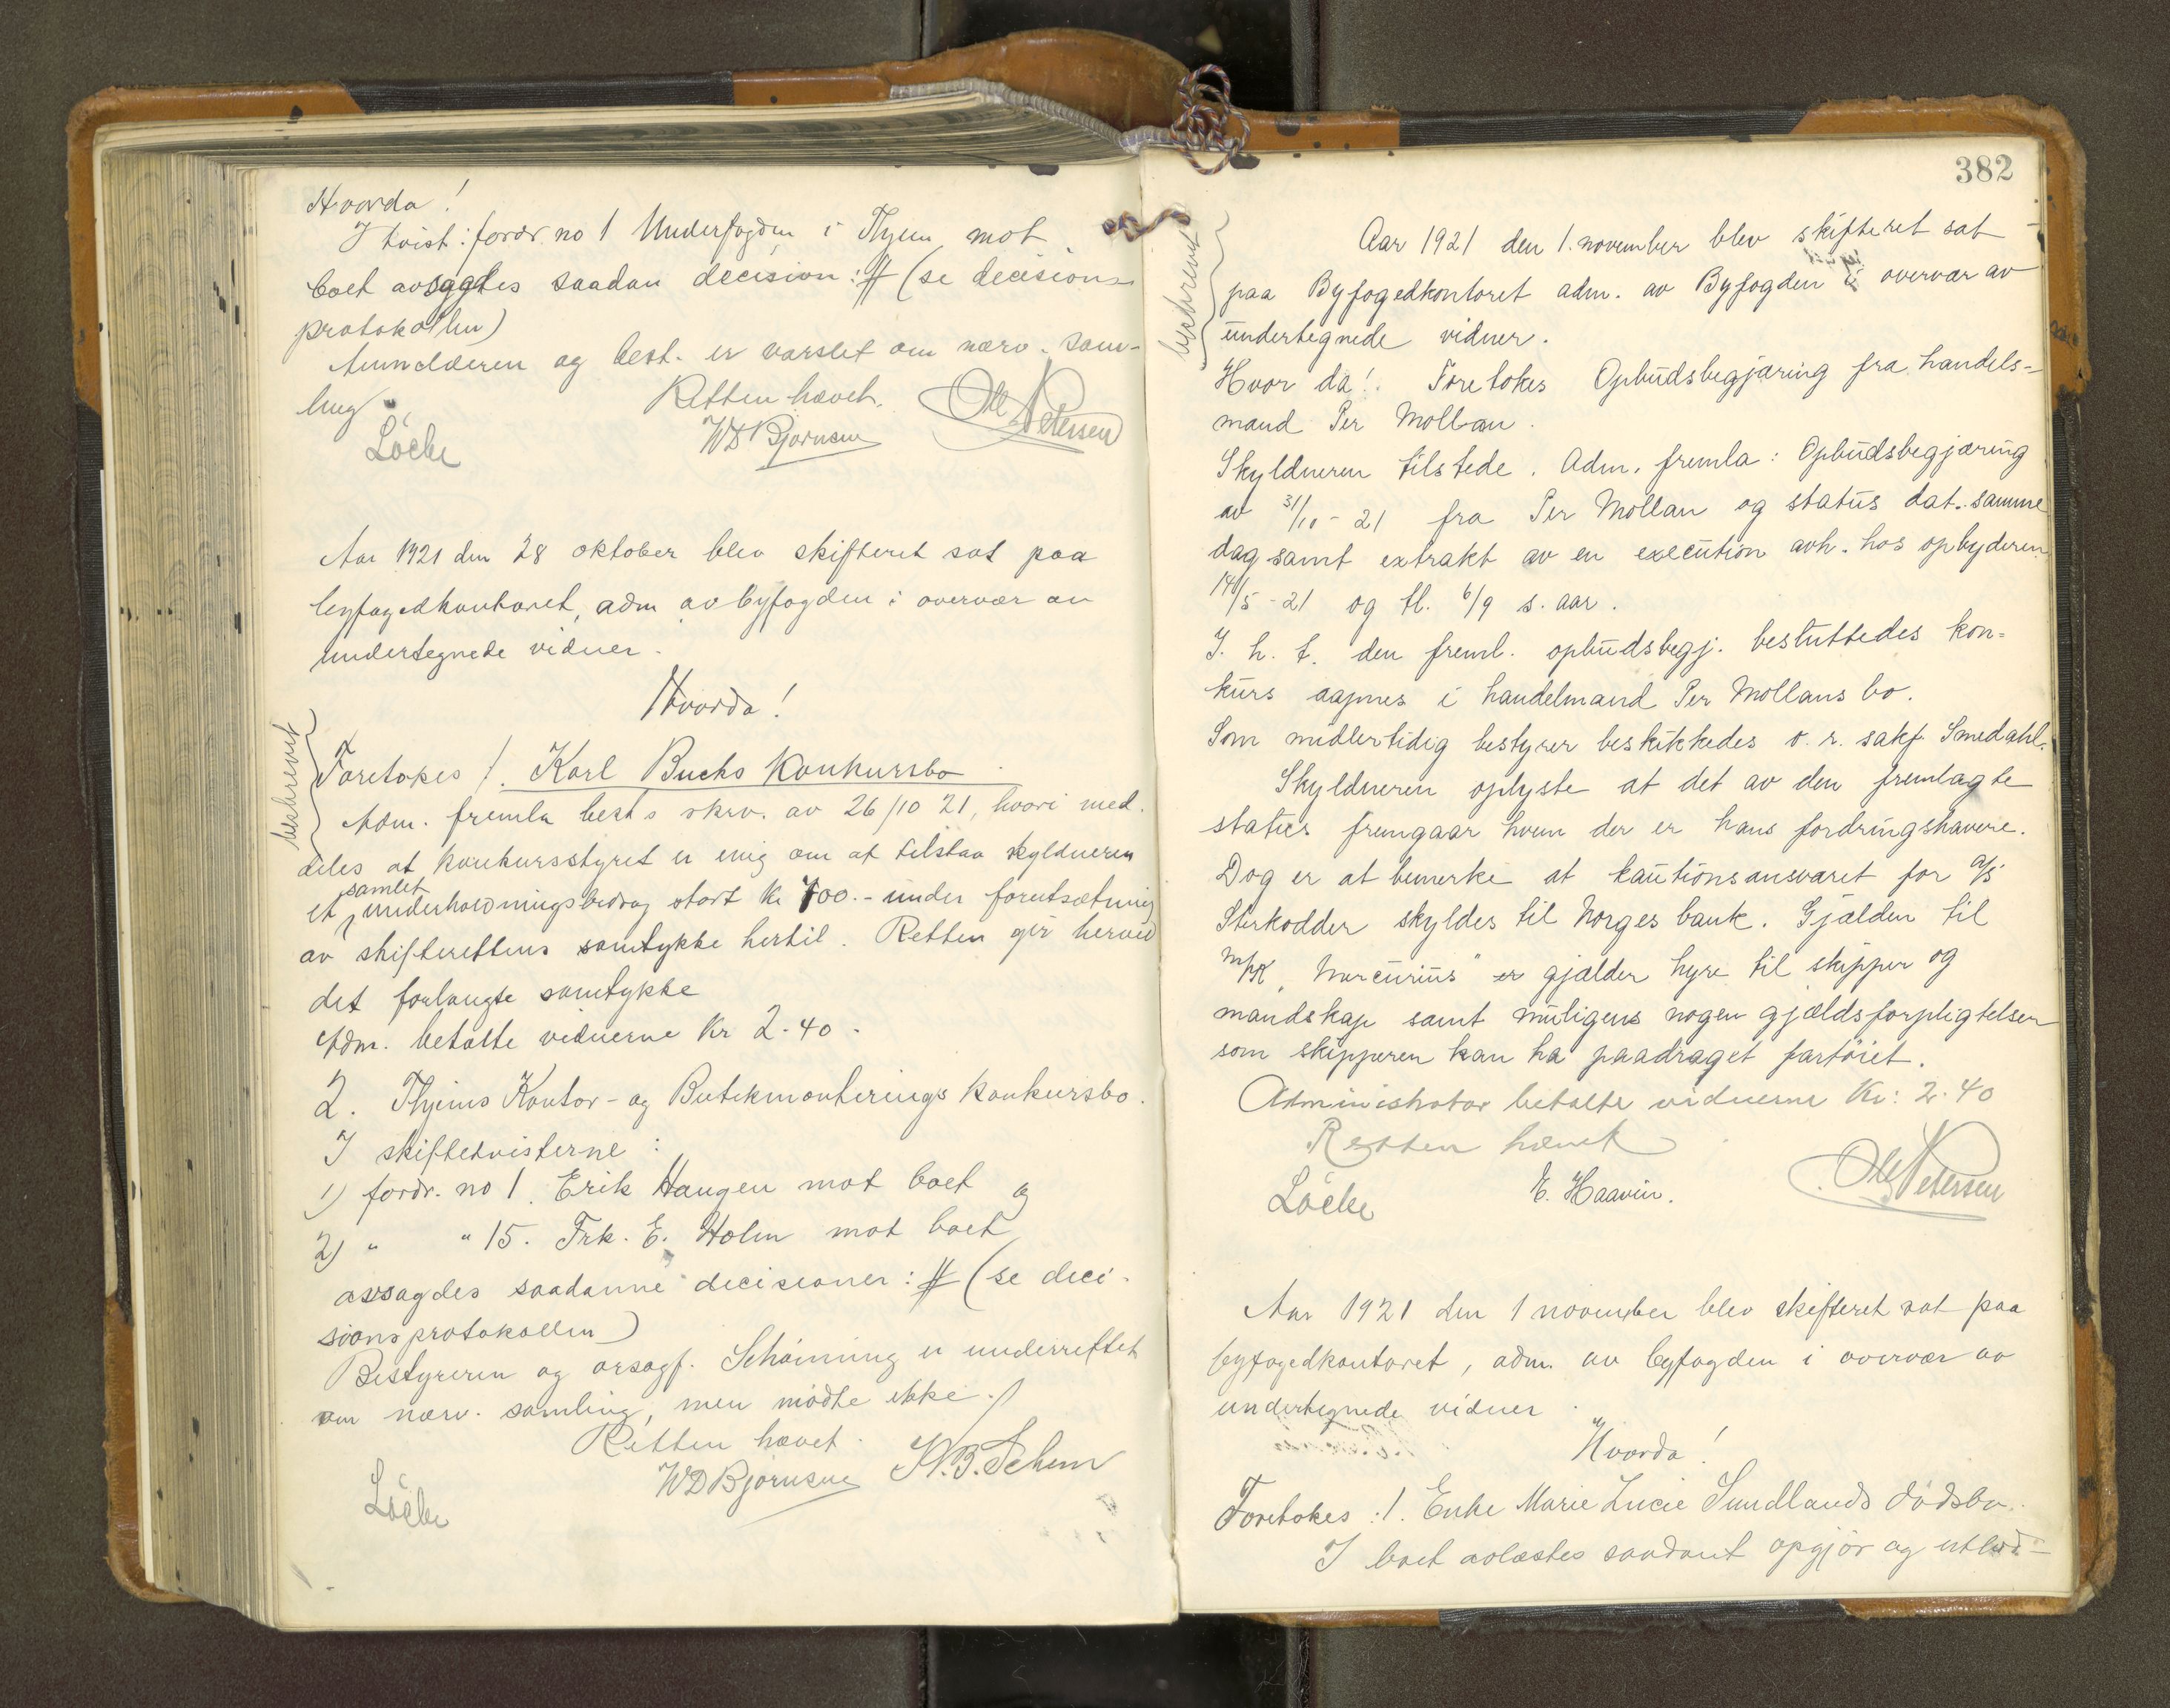 Hvorda!
I tvist: fordr. no 1 Underfogden i Thjem mot
boet avsagdes saadan decision: # (se decisions
protokollen)
Anmelderen og best. er varslet om nærv. sam-
ling
Retten hævet.
Löcke WD Bjørnsen Ole Petersen
Aar 1921 den 28 oktober blev skifteret sat paa
byfogedkontoret, adm av byfogden i overvær av
undertegnede vidner.
Hvorda!
beskrevet
Foretokes 1. Karl Bucks Konkursbo
Adm. fremla best s skrv. av 26/10 21, hvori med.
deles at konkursstyret er enig om at tilstaa skyldneren
samlet
et underholdningsbidrag stort kr 700.- under forutsætning
av skifterettens samtykke hertil. Retten gir herved
det forlangte samtykke
Adm. betalte vidnerne Kr 2.40.
2. Thjems Kontor- og Butikmonterings Konkursbo.
I skiftetvisterne:
1) fordr. no 1. Erik Haugen mot boet og
2) " " 15. Frk. E. Holm mot boet
avsagdes saadanne decisioner: # (se deci-
sionsprotokollen)
Bestyreren og orsagf. Schöinning er underrettet
om nærv. samling, men mödte ikke.
Retten hævet.
Löcke WD Bjørnsen N.B. Schem
382
beskrevet
Aar 1921 den 1. november blev skifteret sat
paa Byfogedkontoret adm. av Byfogden i overvær av
undertegnede vidner.
Hvor da! Foretokes Opbudsbegjæring fra handels-
mand Per Mollan.
Skyldneren tilstede. Adm. fremla: Opbudsbegjæring
av 31/10-21 fra Per Mollan og status dat. samme
dag samt extrakt av en execution avh. hos opbyderen
14/5-21 og tl. 6/9 s. aar.
I. h. t. den freml. opbudsbegj. besluttedes kon-
kurs aapnes i handelmand Per Mollans bo.
Som midlertidig bestyrer beskikkedes o. r. sakf. Smedahl.
Skyldneren oplyste at det av den fremlagte
status fremgaar hvem der er hans fordringshavere.
Dog er at bemerke at kautionsansvaret for A/S
Sterkodder skyldes til Norges bank. Gjælden til
M/K "Mercurius" er gjælder hyre til skipper og
mandskap samt muligens nogen gjældsforpligtelser
som skipperen kan ha paadraget fartöiet.
Administrator betalte vidnerne Kr: 2.40
Retten hævet
Löcke E. Haavin. Ole Petersen
Aar 1921 den 1 november blev skifteret sat paa
byfogedkontoret, adm. av byfogden i overvær av
undertegnede vidner.
Hvorda!
Foretokes: 1. Enke Marie Lucie Sundlands dödsbo.
I boet avlæstes saadant opgjör og utlod-